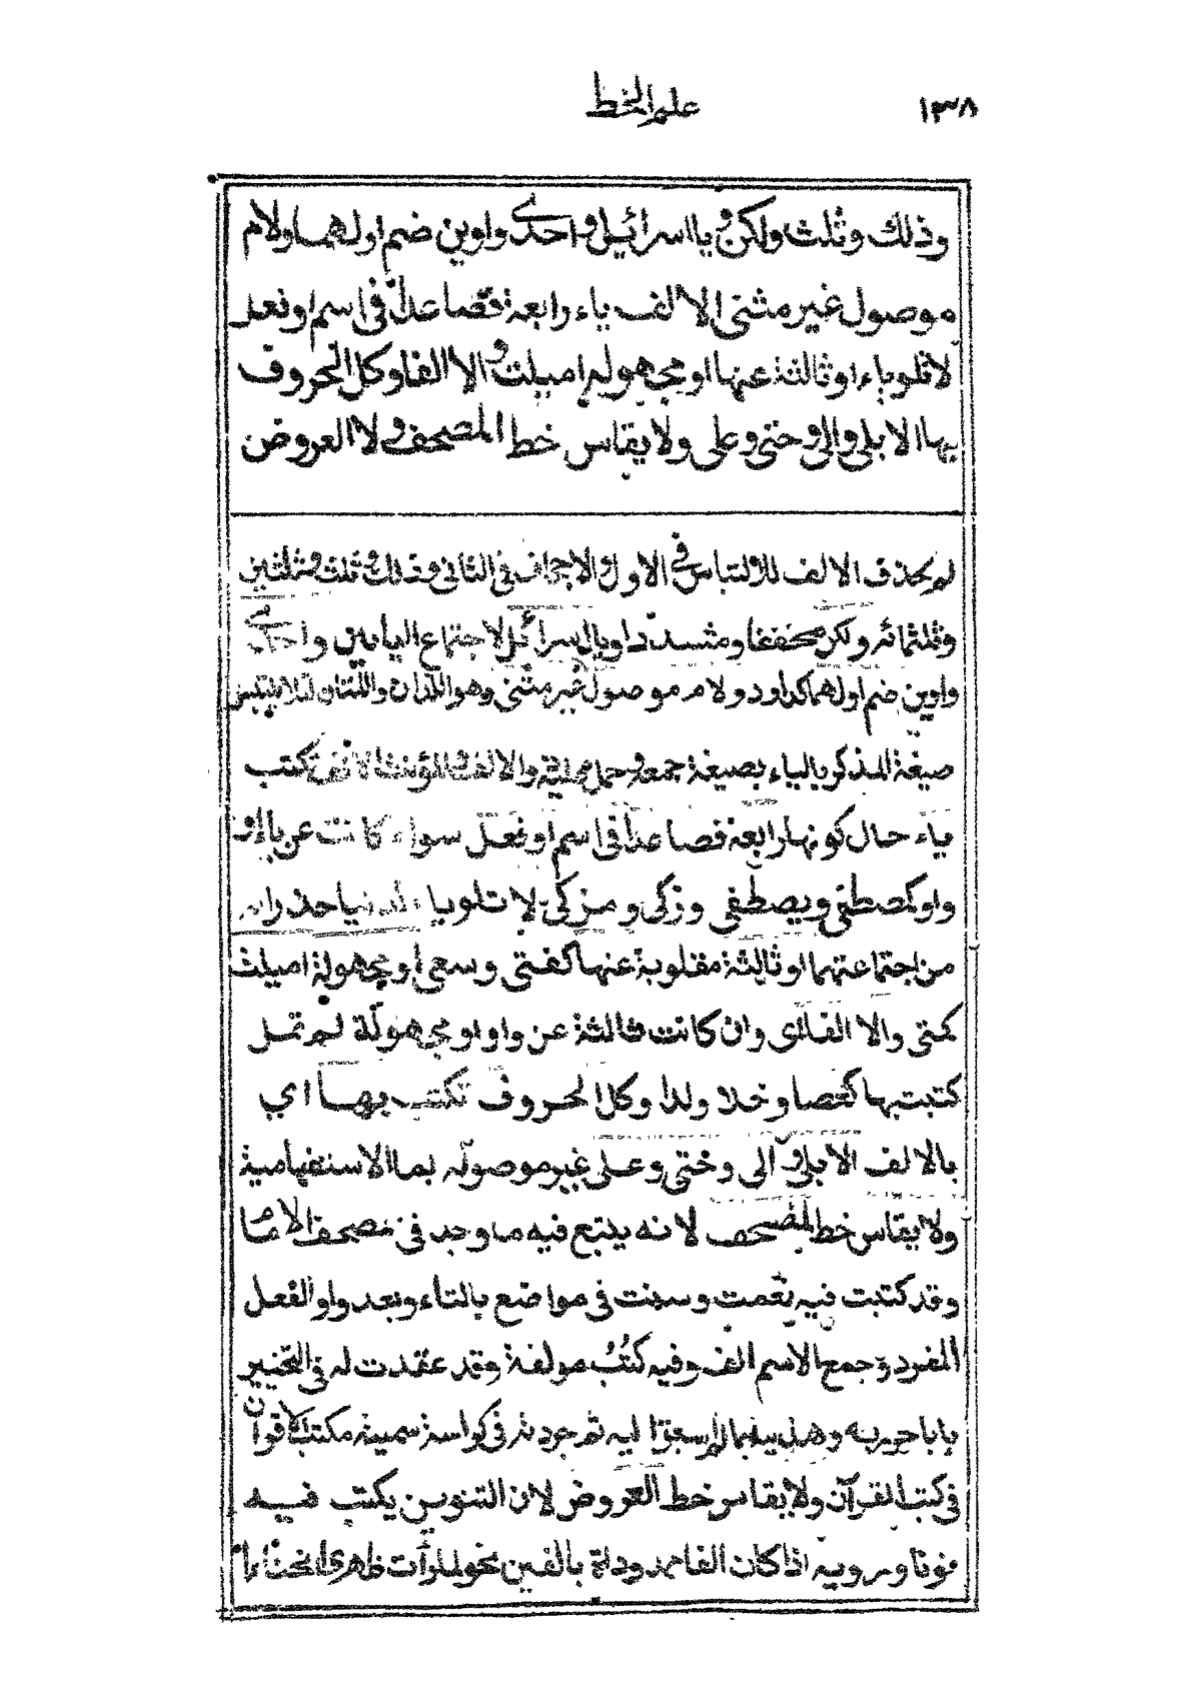 ١٣٨
علم الخط
وذلك وثلث ولكن ويا اسرائيل واحدى واوين ضم اولهما ولام
موصول غير مثنى الا الف ياء رابعة فصاعدا في اسم او فعل
لا تلو ياء او ثالثة عنها او مجهولة اميلت والا الفا وكل الحروف
بها الا بلى والى وحتى وعلى ولا يقاس خط المصحف ولا العروض
لم يحذف الالف للالتباس في الاول والاجحاف في الثاني وذلك وثلث وثلثين
وثلثمائه ولكن مخففا ومشددا ويا اسرائيل لاجتماع اليايين واحدى
واوين ضم اولهما كداود ولام موصول غير مثنى وهو اللذان واللتان لئلا يلتبس
صيغة المذكر بالياء بصيغة جمعه وحمل عليه والالف المؤنث الا الف تكتب
ياء حال كونها رابعة فصاعدا في اسم او فعل سواء كانت عن ياء او
واو كمصطفى ويصطفى وزكى ومزكى لا تلو ياء كدنيا حذرا
من اجتماعهما او ثالثة مقلوبة عنها كفتى وسعى او مجهولة اميلت
كمتى والا الفا اى وان كانت ثالثة عن واو او مجهولة لم تمل
كتبت بها كعصا وخلا ولدا وكل الحروف تكتب بها اي
بالالف الا بلى والى وحتى وعلى غير موصولة بما الاستفهامية
ولا يقاس خط المصحف لانه يتبع فيه ما وجد في مصحف الامام
وقد كتبت فيه نعمت وسنت في مواضع بالتاء وبعد واو الفعل
المفرد وجمع الاسم الف وفيه كتب مولفة وقد عقدت له في التحبير
بابا حررته وهذبته بما لم اسبق اليه ثم جردته في كراسة سميته مكتب الاقران
في كتب القران ولا يقاس خط العروض لان التنوين يكتب فيه
نونا و اذا كان الفا بالفين نحو